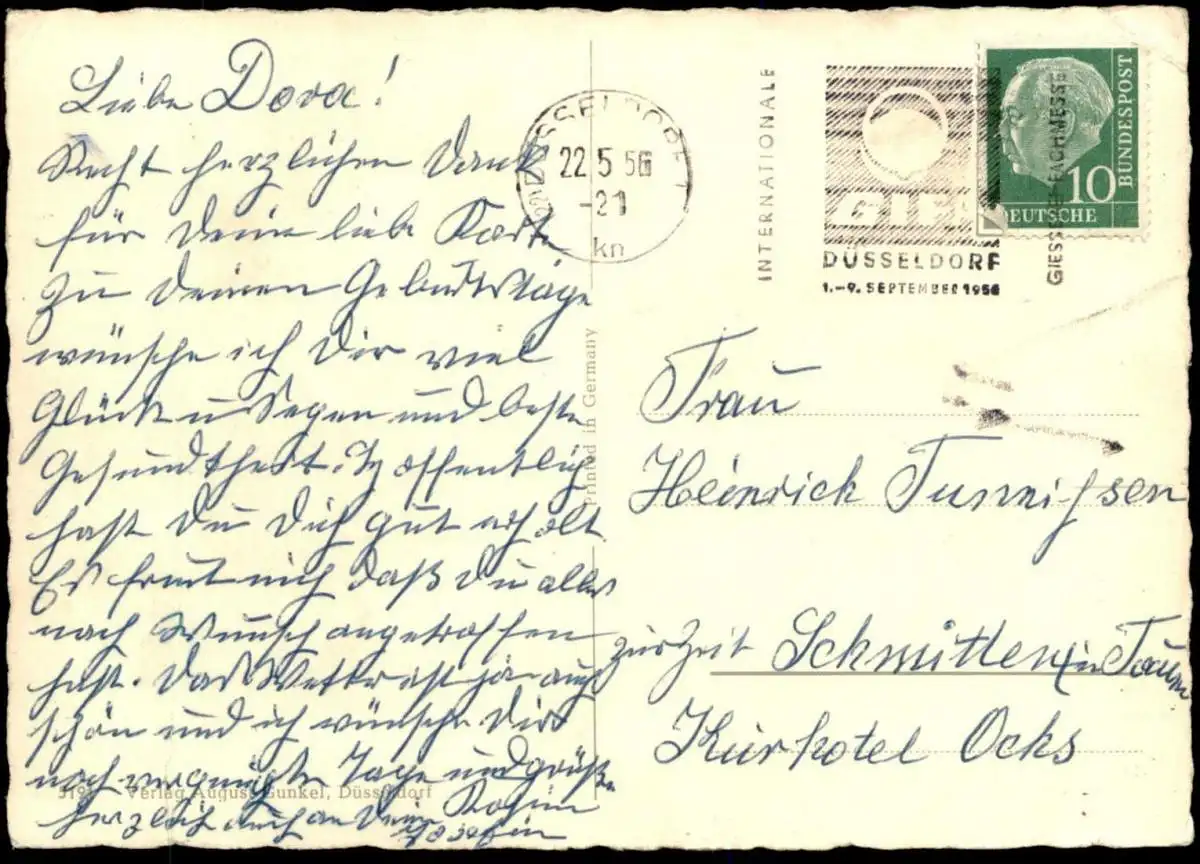 Liebe Dora!
Recht herzlichen Dank
für Deine liebe Karte
zu Deinem Geburtstage
wünsche ich Dir viel
Glück u Segen und beste
Gesundheit. Hoffentlich
hast Du Dich gut erholt
Es freut mich daß Du alles
nach Wunsch angetroffen
hast. Das Wetter ist ja auch
schön und ich wünsche Dir
noch vergnügte Tage und grüße
herzlich auch an Deine
DÜSSELDORF 1
22.5.56
-21
kn
INTERNATIONALE
GIESSEREI-FACHMESSE
GIFA
DÜSSELDORF
1.-9. SEPTEMBER 1956
DEUTSCHE
BUNDESPOST
10
Printed in Germany
Frau
Heinrich Tunnißen
zur Zeit Schmitten in Taunus
Kurhotel Ochs
Verlag August Gunkel, Düsseldorf